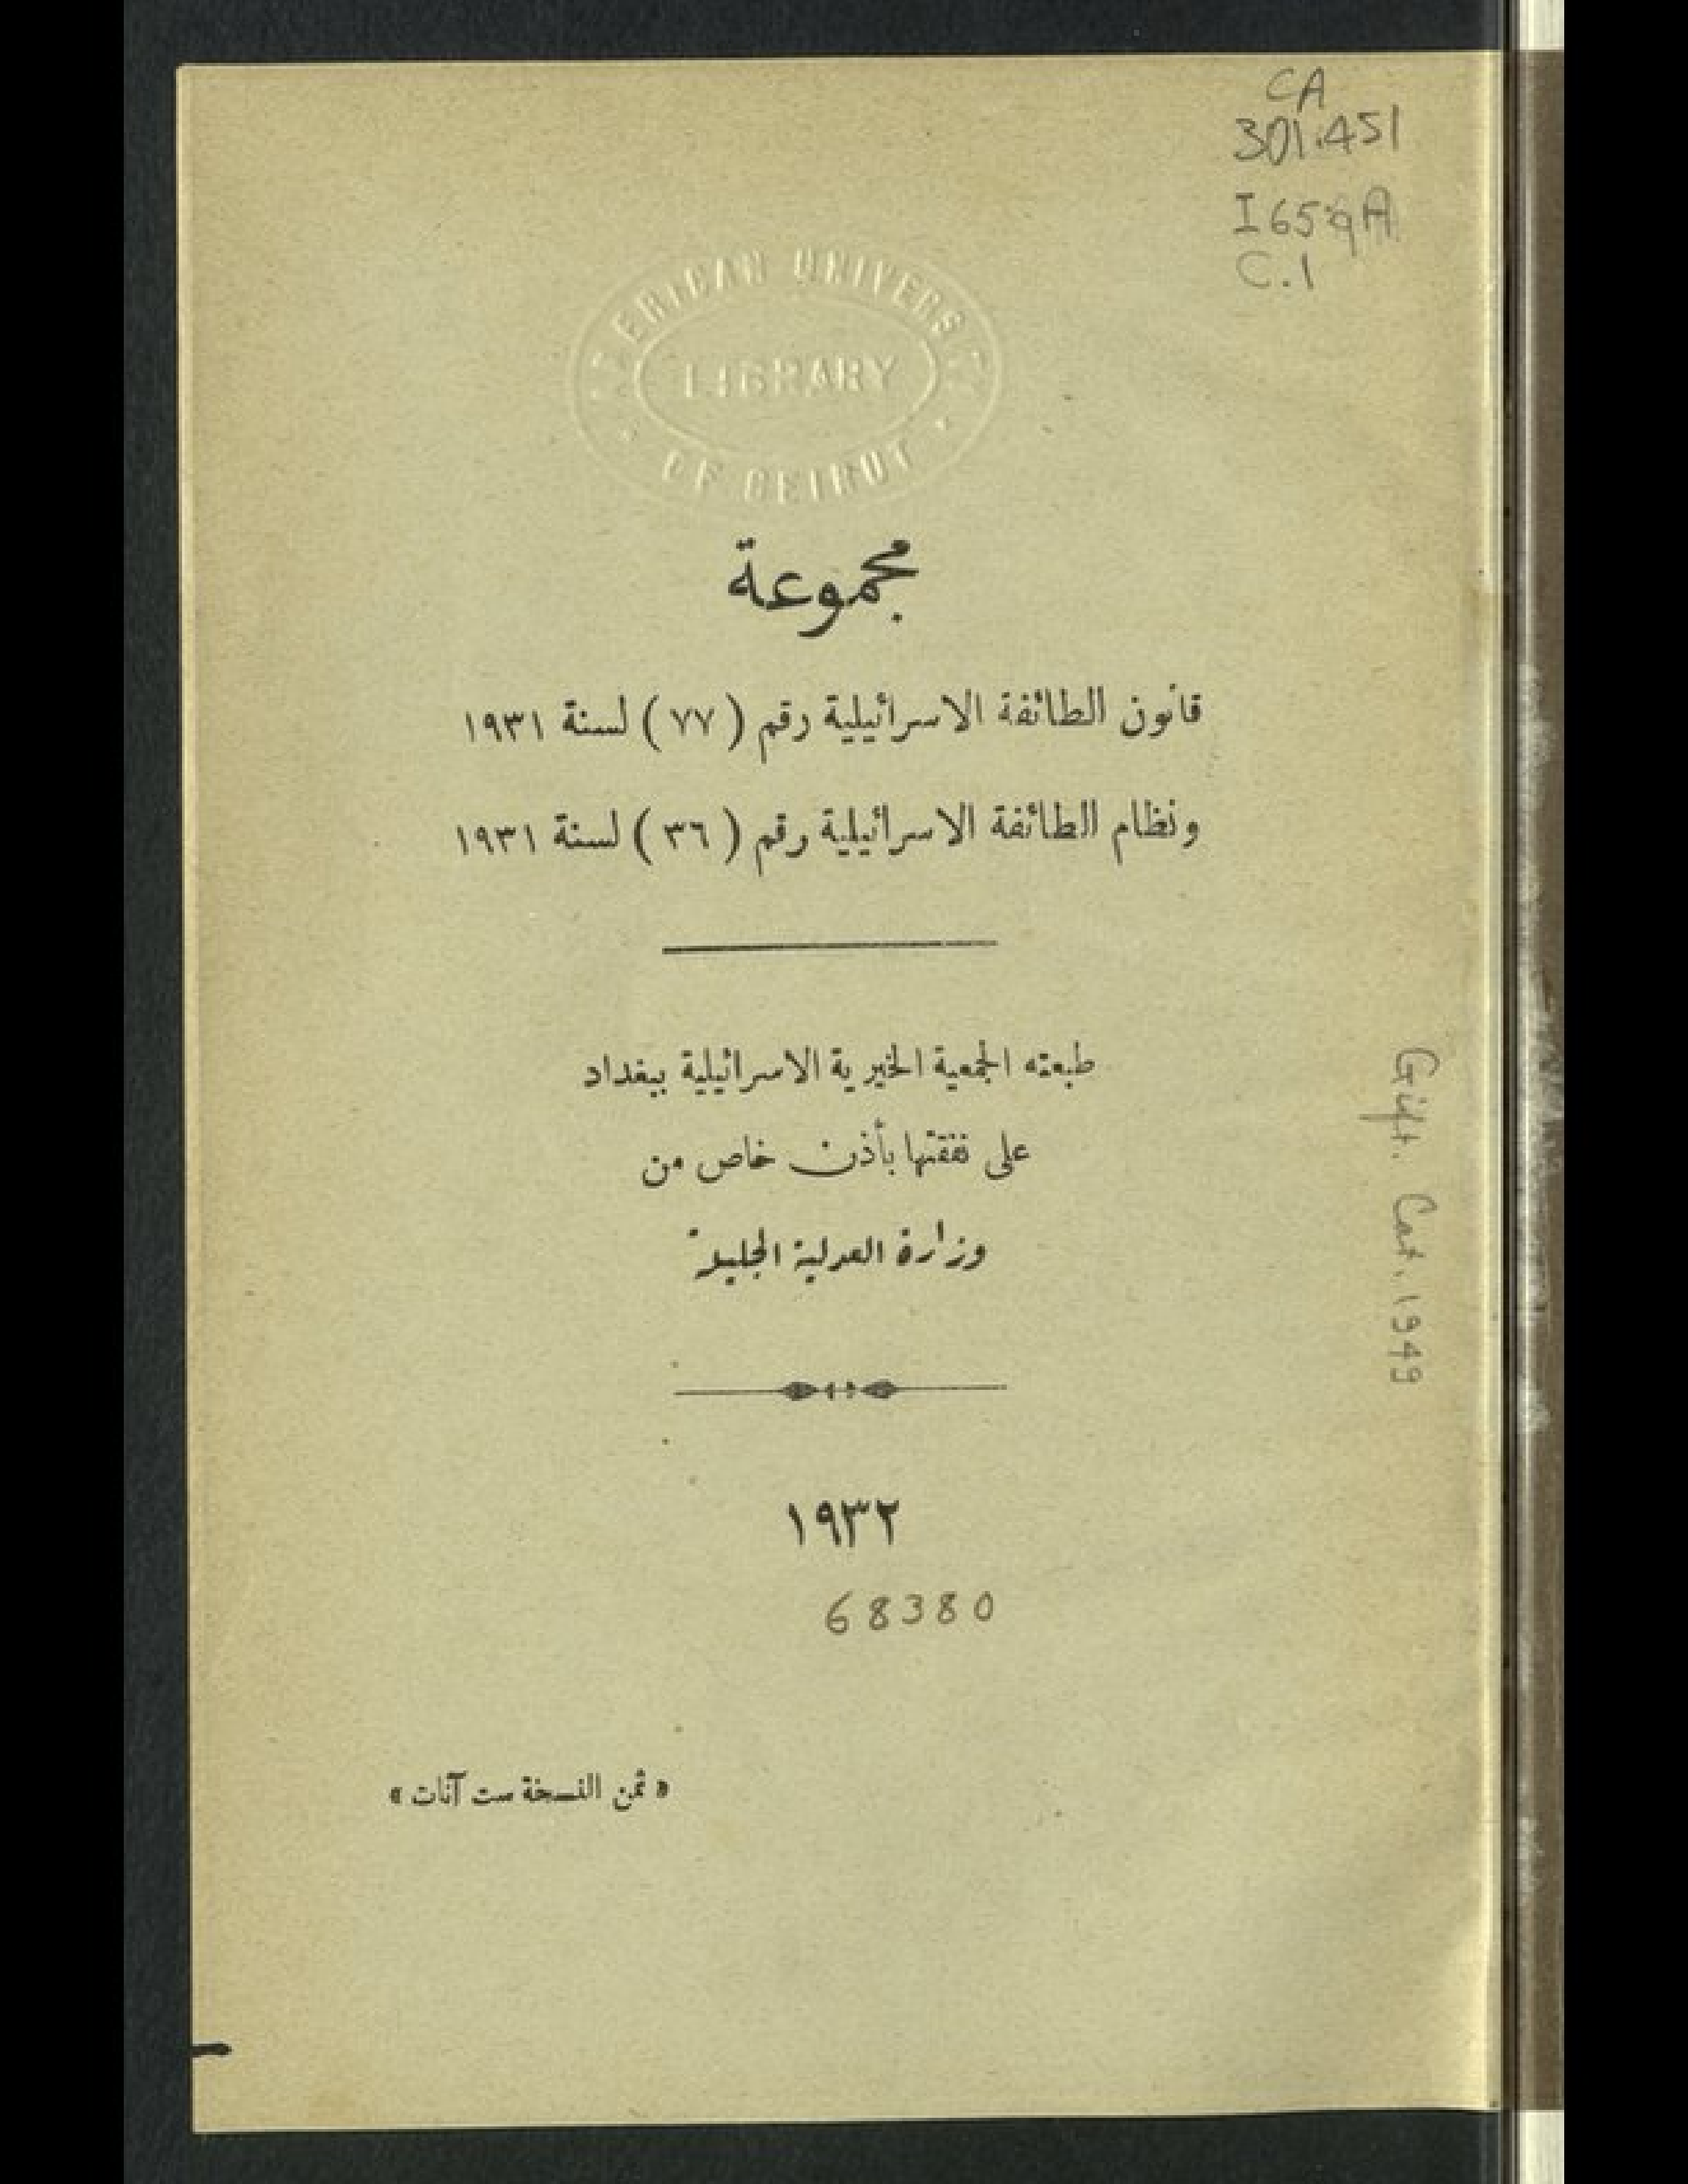 CA
301.451
I65qA
C.1
AMERICAN UNIVERSITY
LIBRARY
OF BEIRUT
مجموعة
قانون الطائفة الاسرائيلية رقم ( ٧٧ ) لسنة ١٩٣١
ونظام الطائفة الاسرائيلية رقم ( ٣٦ ) لسنة ١٩٣١
طبعته الجمعية الخيرية الاسرائيلية ببغداد
على نفقتها بأذن خاص من
وزارة العدلية الجليلة
Gift. Cat. 1949
١٩٣٢
68380
« ثمن النسخة ست آنات »